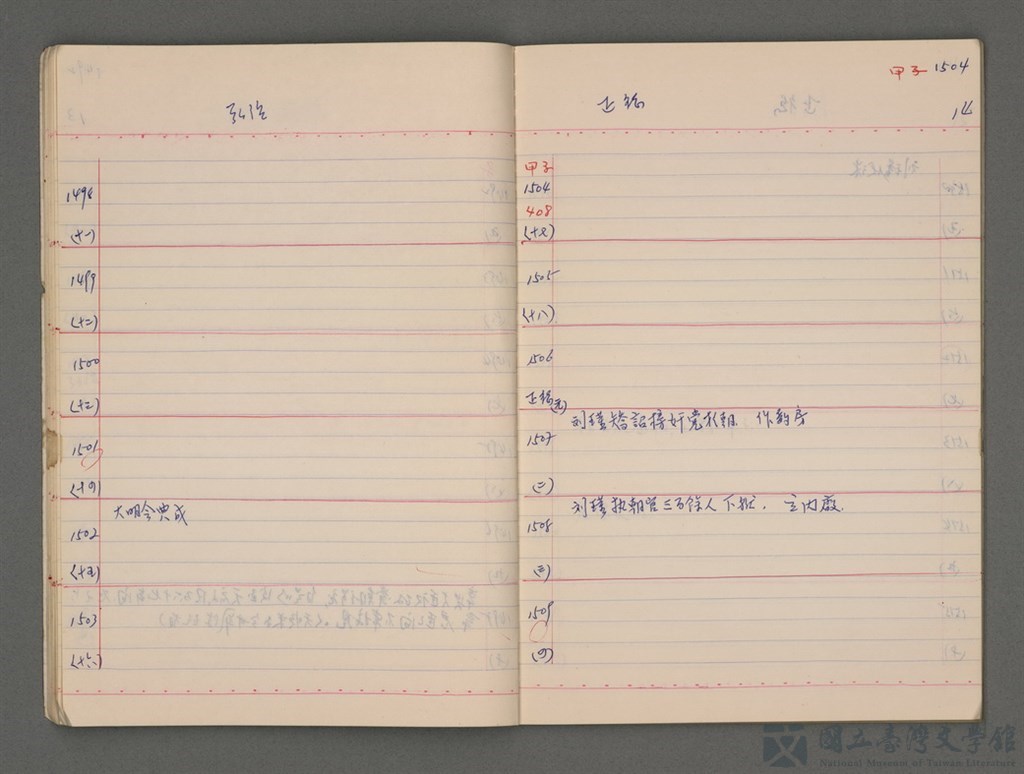 弘治
1498
(十一)
1499
(十二)
1500
(十三)
1501
(十四)
大明会典成
1502
(十五)
1503
(十六)
甲子 1504
正德
14
甲子
1504
408
(十七)
1505
(十八)
1506
正德(元)
刘瑾矯詔榜奸党於朝 作豹房
1507
(二)
刘瑾执朝官三百餘人下獄. 立内厰.
1508
(三)
1509
(四)
國立臺灣文學館
National Museum of Taiwan Literature